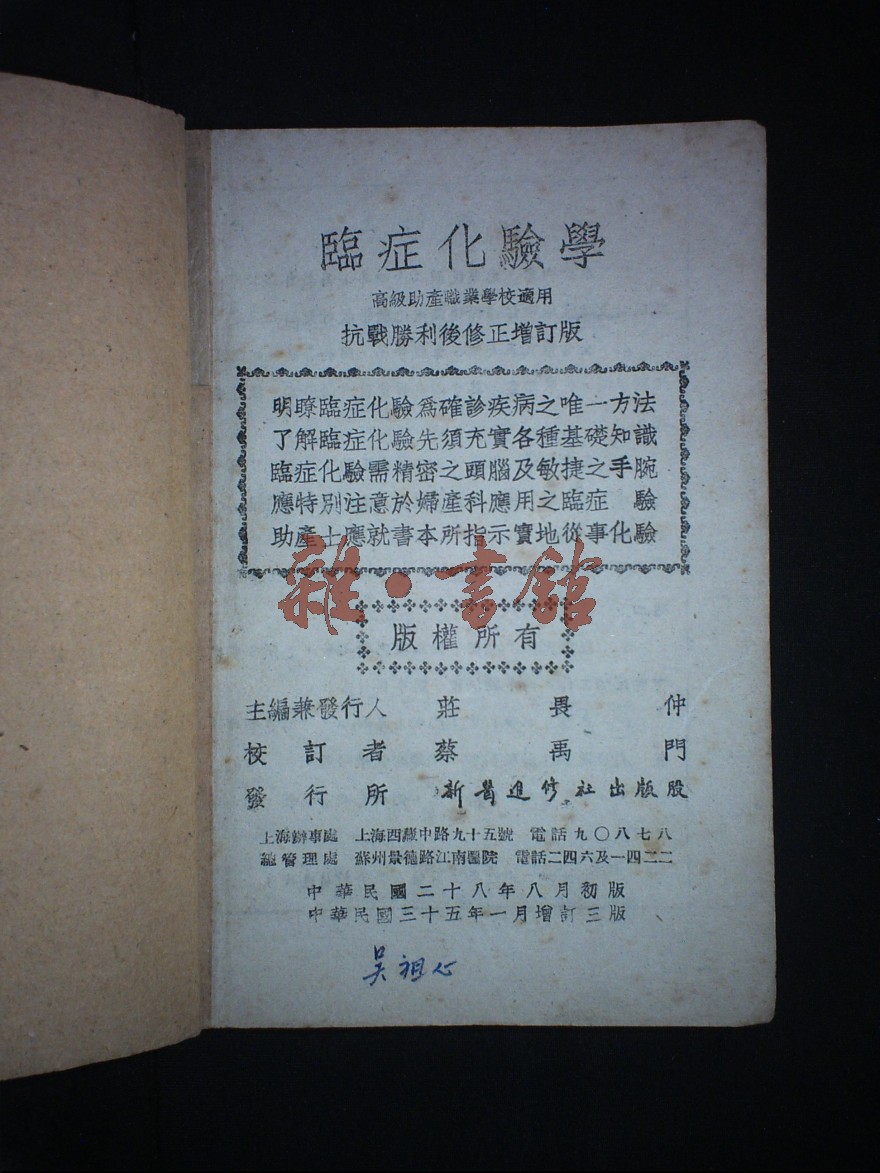 臨症化驗學
高級助產職業學校適用
抗戰勝利後修正增訂版
明瞭臨症化驗為確診疾病之唯一方法
了解臨症化驗先須充實各種基礎知識
臨症化驗需精密之頭腦及敏捷之手腕
應特別注意於婦產科應用之臨症 驗
助產士應就書本所指示實地從事化驗
雜·書館
版權所有
主編兼發行人 莊畏仲
校訂者 蔡禹門
發行所 新醫進修社出版股
上海辦事處 上海西藏中路九十五號 電話九〇八七八
總管理處 蘇州景德路江南醫院 電話二四六及一四二二
中華民國二十八年八月初版
中華民國三十五年一月增訂三版
吳祖心